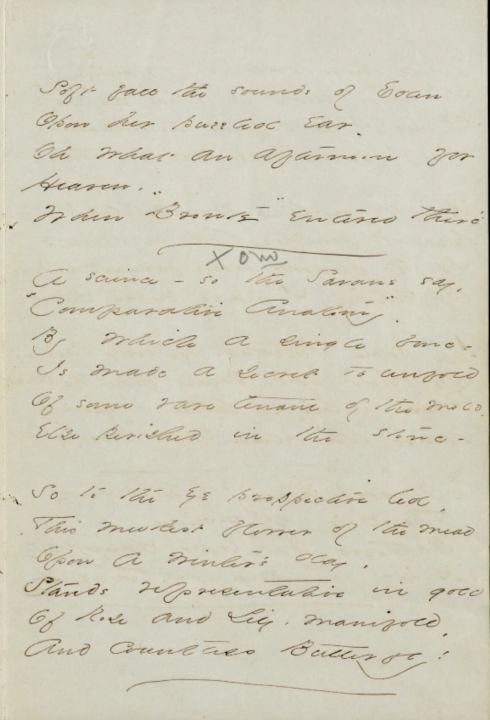 Soft fall the sounds of Eden
Opon her puzzled Ear.
Oh what an afternoon for
Heaven,
When "Bronte" entered there!
X
A science - so the Savans say,
"Comparative Anatomy".
By which a single bone -
Is made a secret to unfold
Of some rare tenant of the mold,
Else perished in the stone -
So to the eye prospective led,
This meekest flower of the mead
Opon a winter's day,
Stands representative in gold
Of Rose and Lily, manifold,
And countless Butterfly!